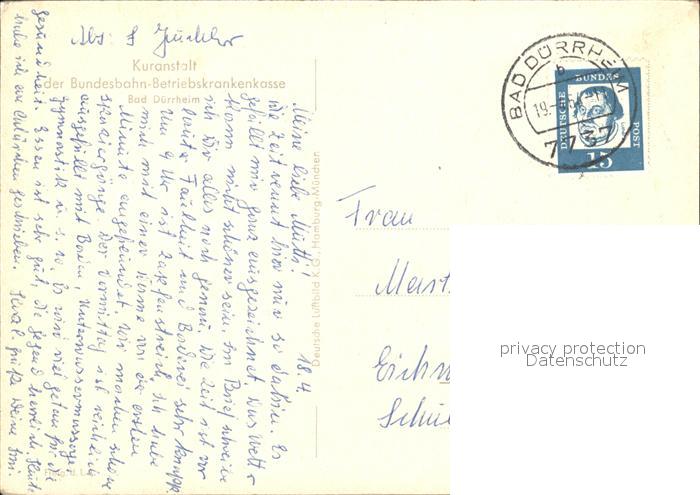 Abs.
Kuranstalt
der Bundesbahn-Betriebskrankenkasse
Bad Dürrheim
18.4.
Meine liebe Mutti!
Die Zeit rennt hier nur so dahin. Es
gefällt mir ganz ausgezeichnet. Das Wetter
kann nicht schöner sein. Im Brief schreibe
ich Dir alles noch genau. Die Zeit ist vor
lauter Faulheit und Baderei sehr knapp.
Um 9 Uhr ist Zapfenstreich. Ich habe
mich mit einer Dame von der ersten
Minute angefreundet. Wir machen schöne
Spaziergänge. Der Vormittag ist reichlich
ausgefüllt mit Baden, Unterwassermassage,
Gymnastik u. s. w. Es wird viel getan für die
Gesundheit. Essen ist sehr gut, die Gegend herrlich. Heute
habe ich an geschrieben. grüßt Deine
Deutsche Luftbild K.G., Hamburg-München
BAD DÜRRHEIM
b
19.
773
DEUTSCHE
BUNDES
POST
15
Frau
privacy protection
Datenschutz